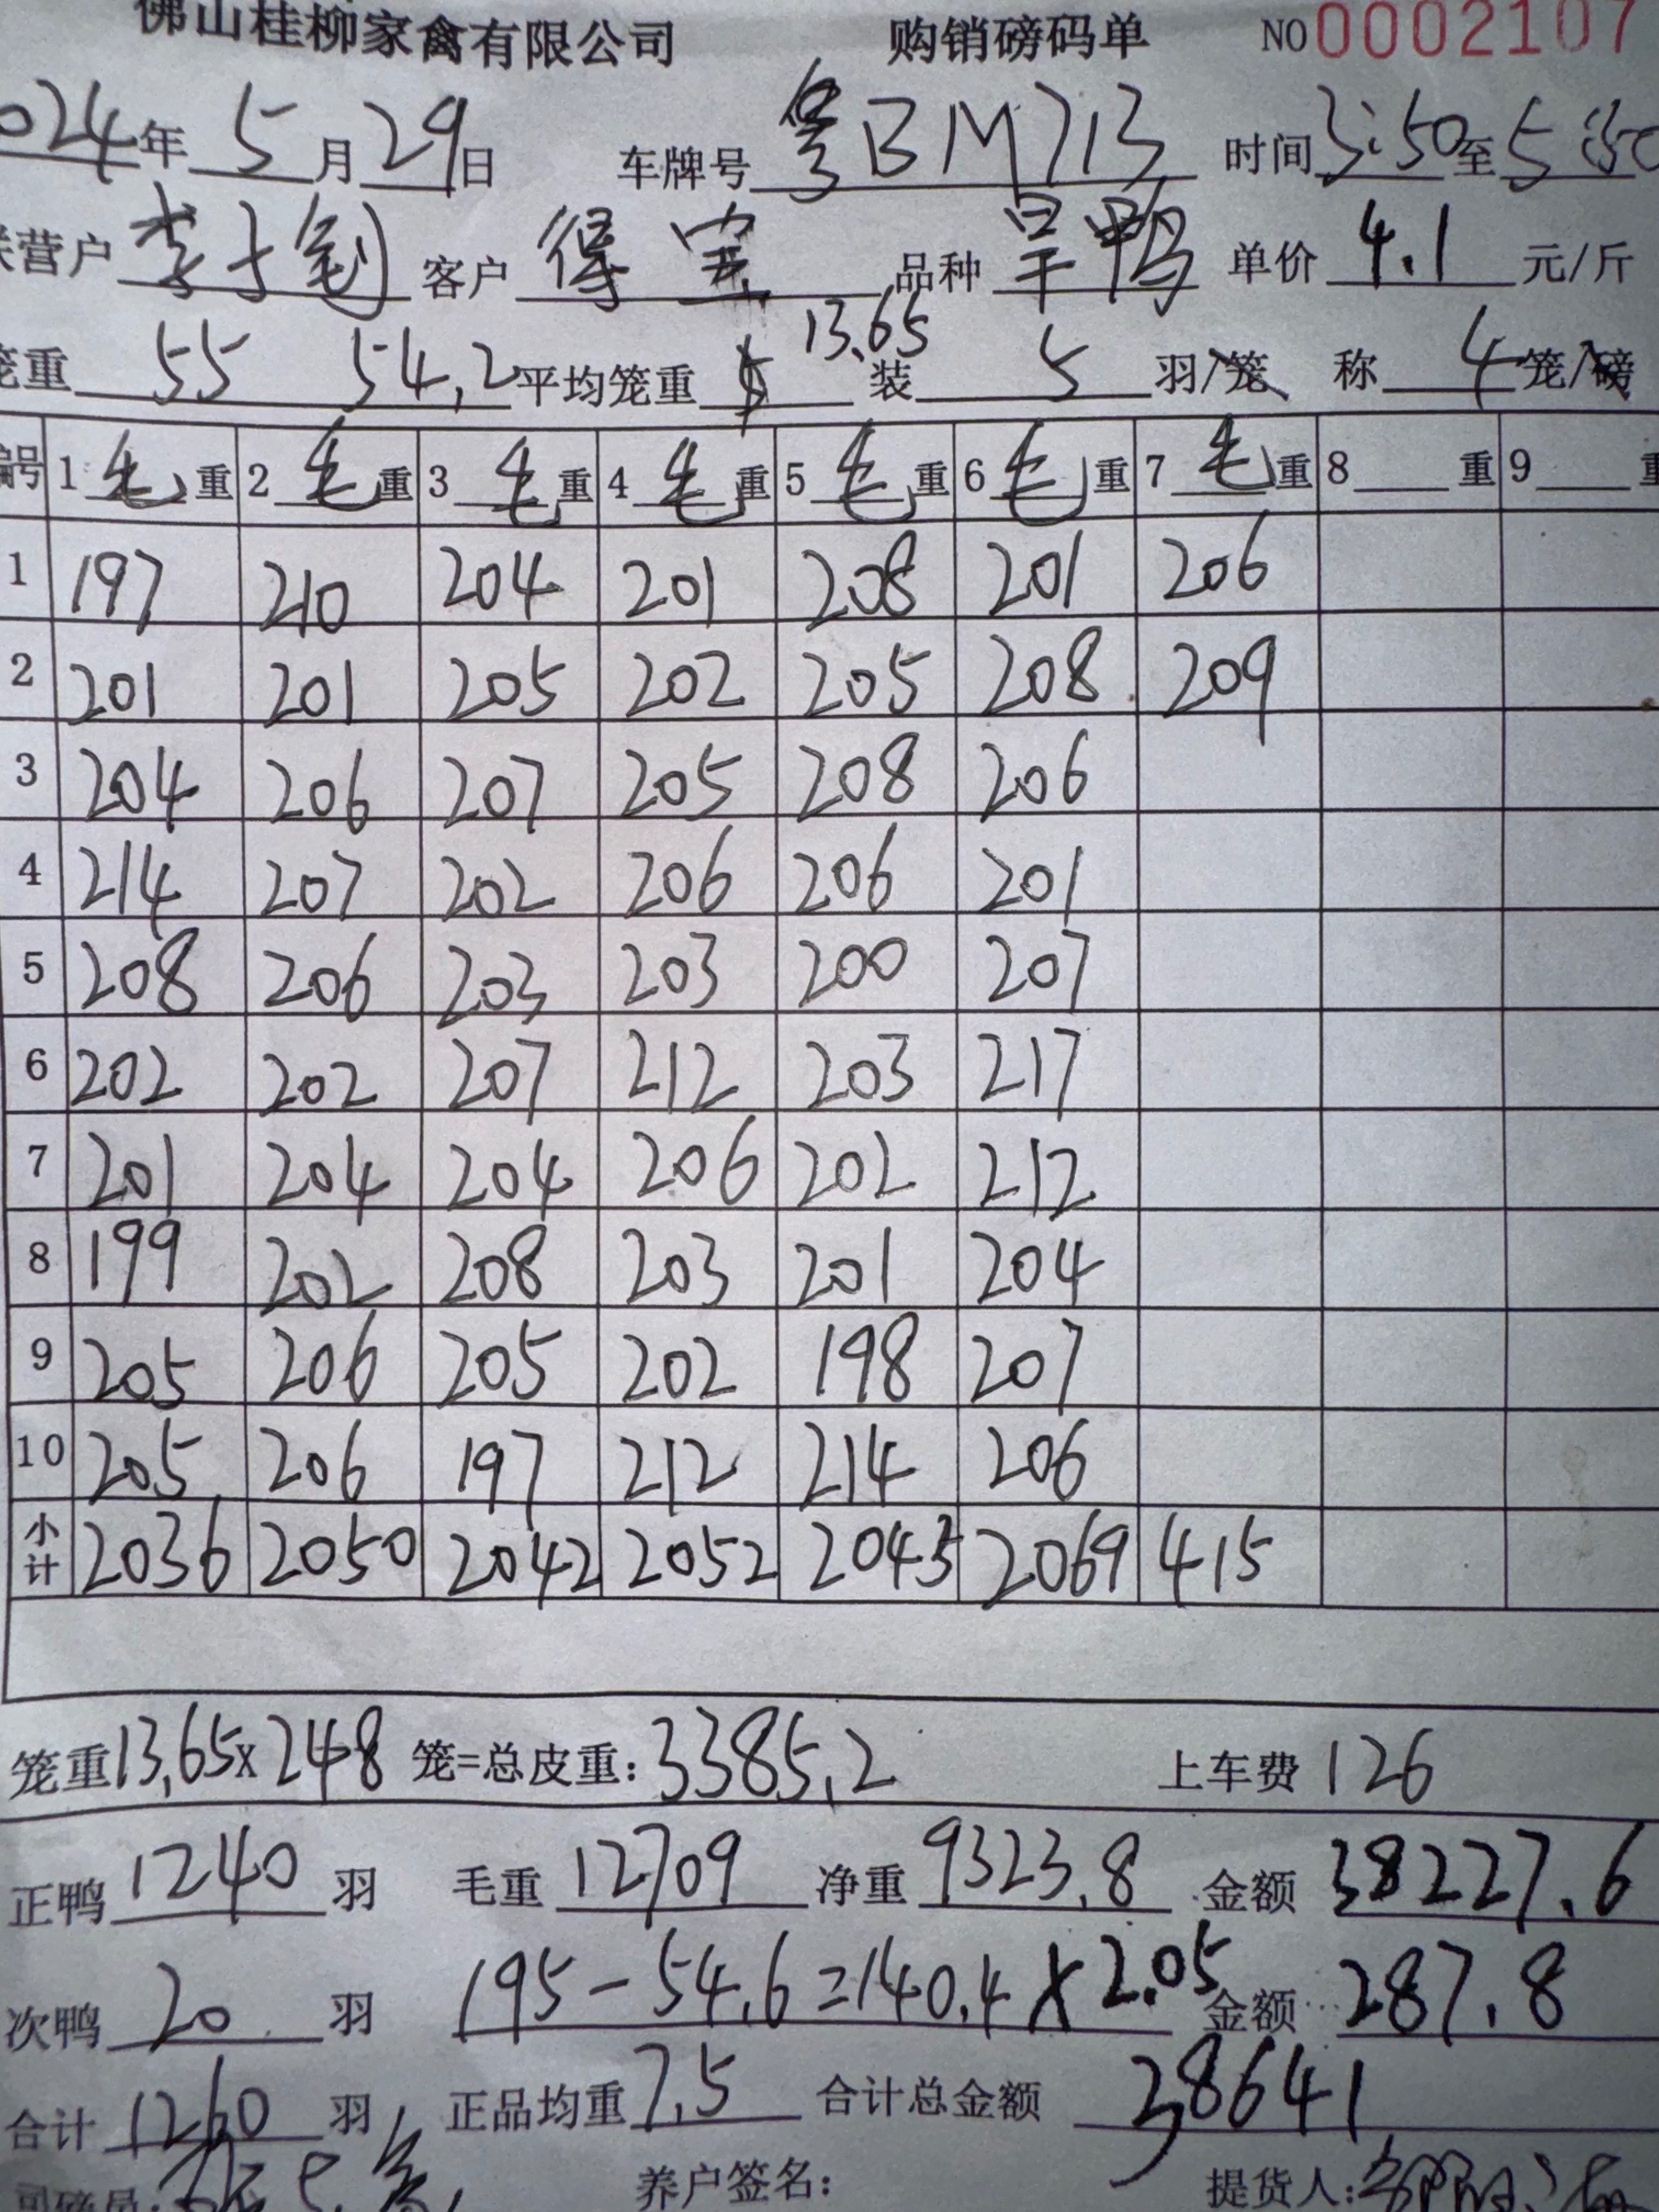 佛山桂柳家禽有限公司 购销磅码单 NO 0002107
024年 5 月 29 日 车牌号 粤BM713 时间 3:50 至 5:50
营户 客户 得宝 品种 旱鸭 单价 4.1 元/斤
笼重 55 54.2 平均笼重 13.65 装 5 羽/笼 称 4 笼/磅
编号 1 毛 重 2 毛 重 3 毛 重 4 毛 重 5 毛 重 6 毛 重 7 毛 重 8 重 9 重
1 197 210 204 201 208 201 206
2 201 201 205 202 205 208 209
3 204 206 207 205 208 206
4 214 207 202 206 206 201
5 208 206 203 203 200 207
6 202 202 207 212 203 217
7 201 204 204 206 202 212
8 199 202 208 203 201 204
9 205 206 205 202 198 207
10 205 206 197 212 214 206
小计 2036 2050 2042 2052 2045 2069 415
笼重 13.65 x 248 笼=总皮重: 3385.2 上车费 126
正鸭 1240 羽 毛重 12709 净重 9323.8 金额 38227.6
次鸭 20 羽 195-54.6=140.4×2.05 金额 287.8
合计 1260 羽 正品均重 7.5 合计总金额 38641
司磅员: 养户签名: 提货人: